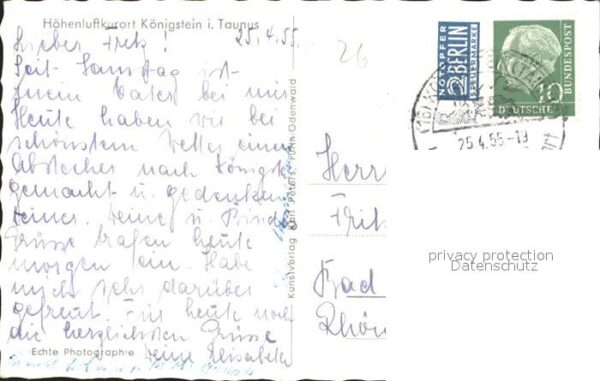 Höhenluftkurort Königstein i. Taunus
25.4.55.
26
Lieber Fritz!
Seit Samstag ist
mein Vater bei mir
Heute haben wir bei
schönstem Wetter einen
Abstecher nach Königst.
gemacht u. gedenken
Deiner. Deine u.
Grüsse trafen heute
morgen ein. Habe
mich sehr darüber
gefreut. Für heute noch
die herzlichsten Grüsse
Deine Elisabeth
Echte Photographie
Kunstverlag Peters, Fürth Odenwald
NOTOPFER
2 BERLIN
STEUERMARKE
10
DEUTSCHE
BUNDESPOST
25.4.55-19
Herrn
Fritz
Bad
Rhön
privacy protection
Datenschutz